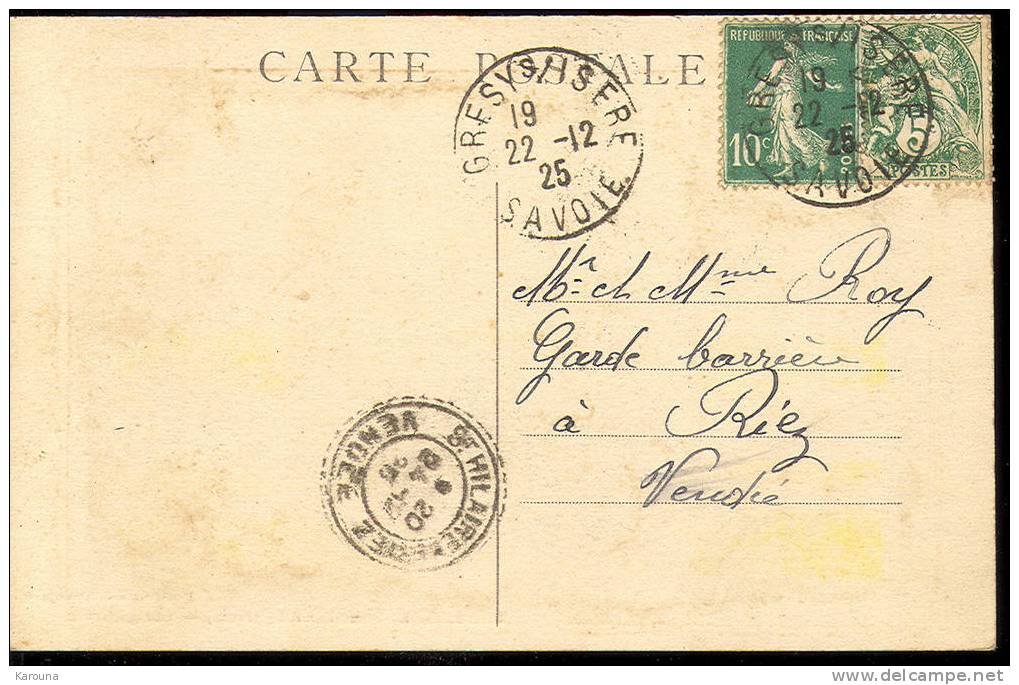 CARTE POSTALE
RÉPUBLIQUE FRANÇAISE
10c
5
POSTES
GRESY S/ ISERE
19
22 -12
25
SAVOIE
GRESY S/ ISERE
19
22 -12
25
SAVOIE
Mr et Mme Roy
Garde barrière
à Riez
Vendée
ST HILAIRE DE RIEZ
VENDEE
20
24
25
Karouna
delcampe.net